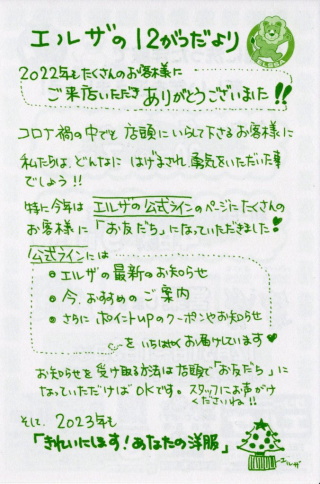 エルザの12がつだより
2022年もたくさんのお客様に
ご来店いただきありがとうございました!!
コロナ禍の中でも店頭にいらして下さるお客様に
私たちは、どんなに はげまされ、勇気をいただいた事
でしょう!!
特に今年は エルザの公式ラインのページにたくさんの
お客様に「お友だち」になっていただきました♥
公式ラインには
• エルザの最新のお知らせ
• 今、おすすめのご案内
• さらに ポイントupのクーポンやお知らせ
をいちはやくお届けしています♥
お知らせを受け取る方法は店頭で「お友だち」に
なっていただけばOKです。スタッフにお声がけ
くださいね!!
そして、2023年も
「きれいにします!あなたの洋服」
エルザ